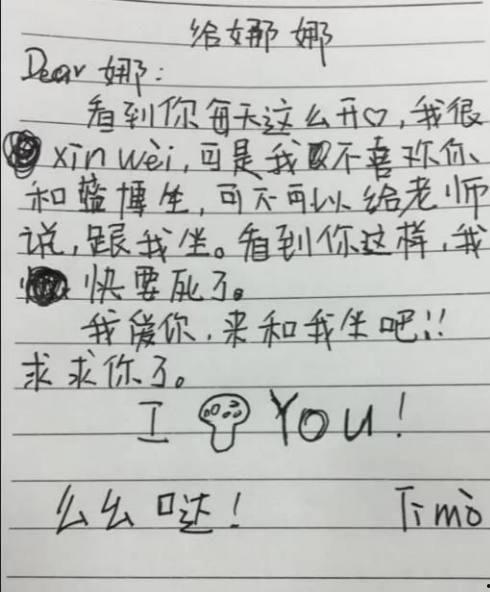 给娜娜
Dear 娜：
看到你每天这么开♡，我很
xīn wèi，可是我不喜欢你、
和博坐，可不可以给老师
说，跟我坐。看到你这样，我
快要死了。
我爱你，来和我坐吧！！
求求你了。
I You！
么么哒！ Timò